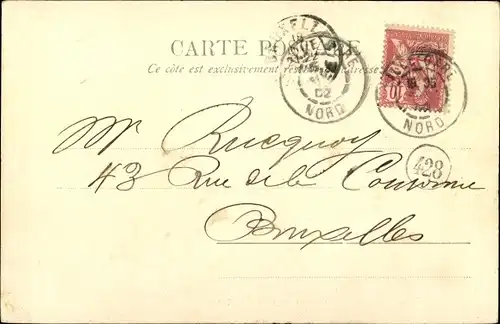 CARTE POSTALE
Ce côté est exclusivement réservé à l'adresse
02
NORD
10
NORD
428
Mr Rucquoy
43 Rue de la Couronne
Bruxelles